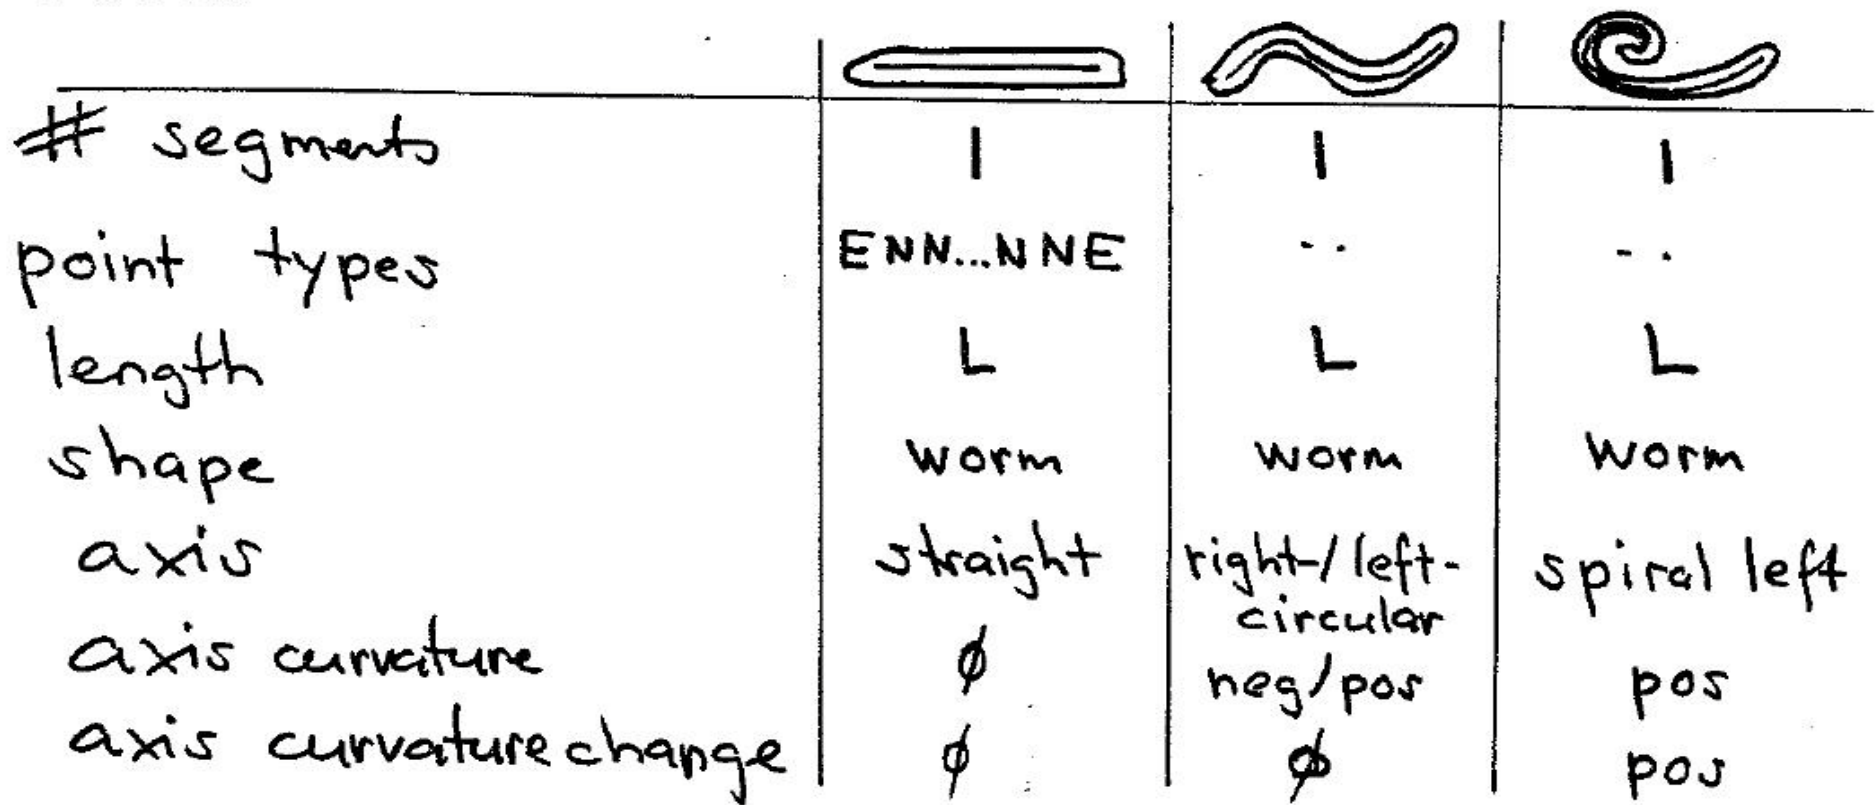 # segments 1 1 1
point types ENN...NNE - . - .
length L L L
shape worm worm worm
axis straight right-/left- spiral left
circular
axis curvature ϕ neg/pos pos
axis curvature change ϕ ϕ pos